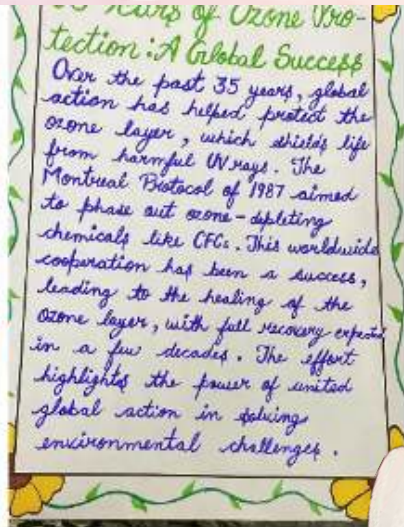 Years of Ozone Pro-
tection : A Global Success
Over the past 35 years, global
action has helped protect the
ozone layer, which shields life
from harmful UV rays. The
Montreal Protocol of 1987 aimed
to phase out ozone-depleting
chemicals like CFCs. This worldwide
cooperation has been a success,
leading to the healing of the
ozone layer, with full recovery expected
in a few decades. The effort
highlights the power of united
global action in solving
environmental challenges.